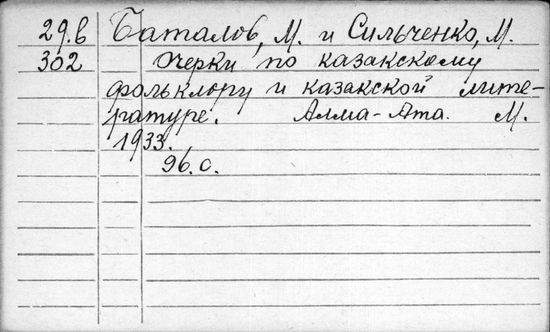 29.6 Баталов, М. и Сильченко, М.
302 Очерки по казакскому
фольклору и казакской лите-
ратуре. Алма-Ата. М.
1933.
96. с.